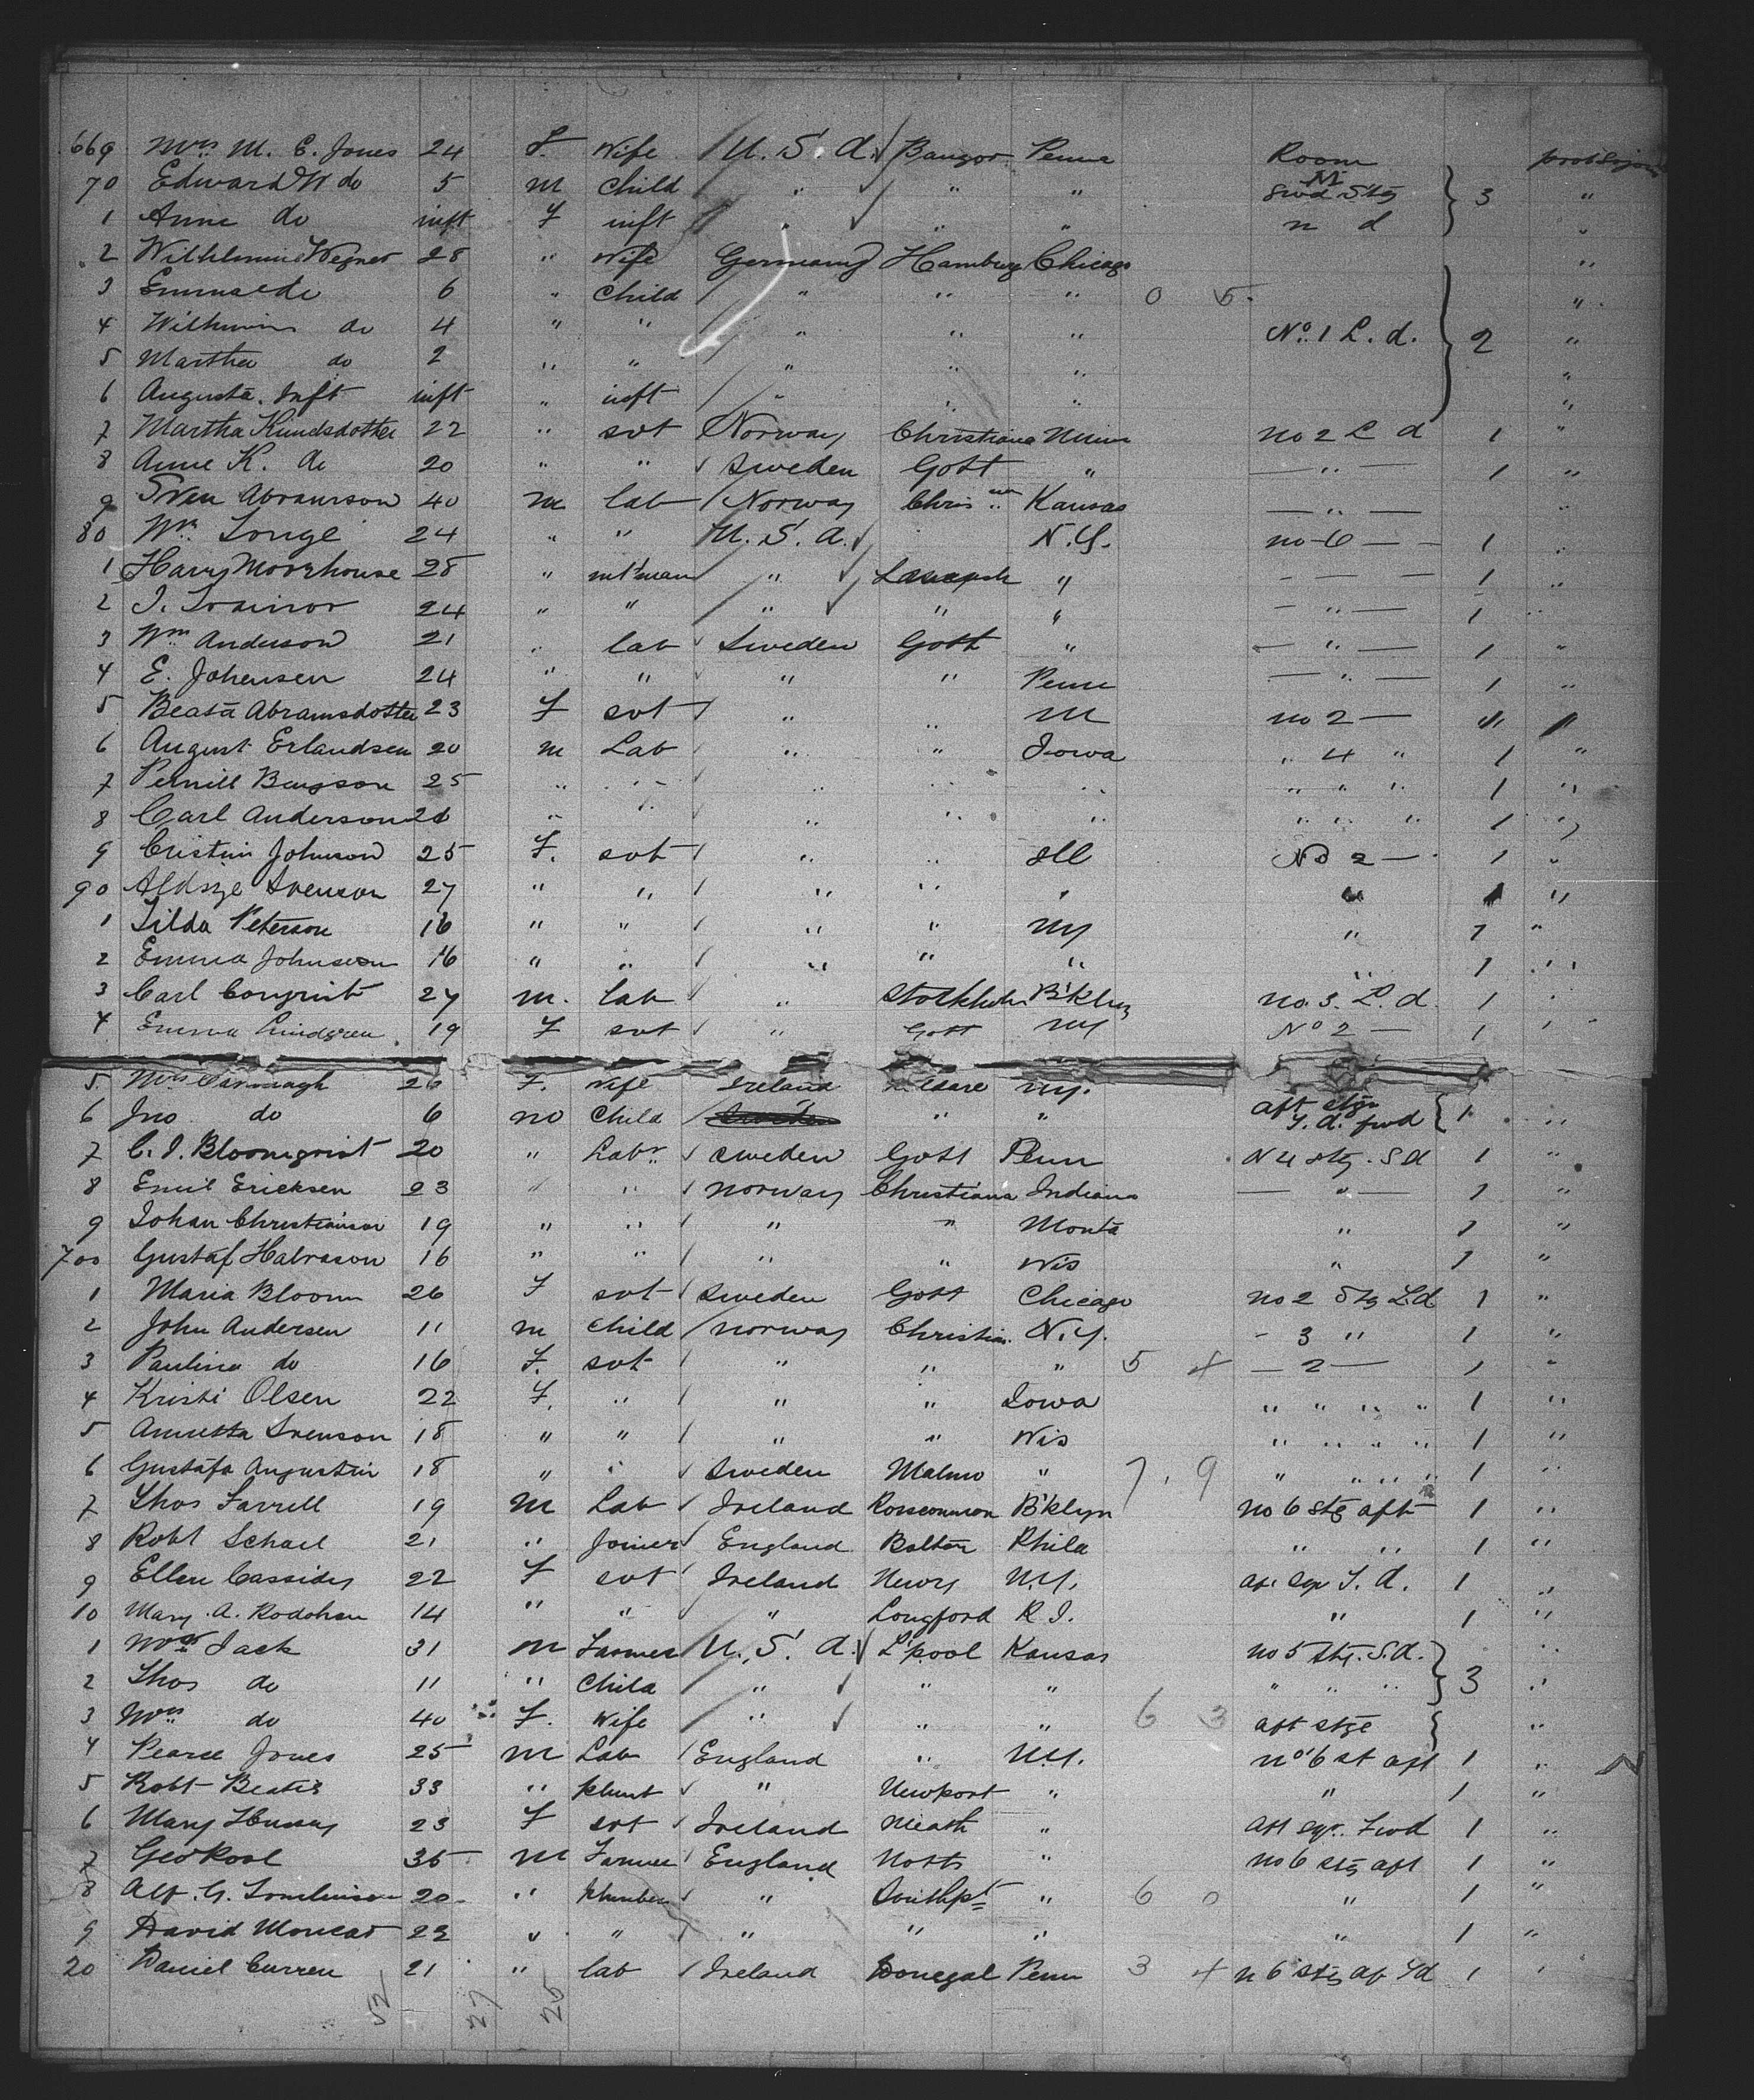 669 Mrs M. E. Jones 24 F. Wife U. S. A. Bangor Penna Room M prot Sojourn
70 Edward W do 5 M Child " " " Swd Stg 3 "
1 Anne do inft F inft " " " n d "
2 Wilhlemine Wegner 28 " Wife Germany Hamburg Chicago "
3 Emma do 6 " Child " " " 0 5. "
4 Wilhmin do 4 " " " " " No. 1 L. d. 2 "
5 Martha do 2 " " " " " "
6 Augusta. Inft inft " inft " " " "
7 Martha Knudsdotter 22 " svt Norway Christiana Minn no 2 L d 1 "
8 Anne K. do 20 " " Sweden Gott " — " — 1 "
9 Sven Abramson 40 m lab Norway Chris Kansas — " — "
80 Wm. Longe 24 " " U. S. A. N.Y. no 6 — — 1 "
1 Harry Moorhouse 28 " " " — — — 1 "
2 J. Trainor 24 " " " " " — " — 1 "
3 Wm Anderson 21 " lab Sweden Gott " — " — 1 "
4 E. Johensen 24 " " " " Penn — " — 1 "
5 Beata Abramsdotter 23 F svt " " M no 2 — " "
6 August Erlandsen 20 m Lab " " Iowa " 4 " 1 "
7 Pernill Bengson 25 " " " " " " " " 1 "
8 Carl Anderson " " " " " " " " 1 "
9 Cristin Johnson 25 F. svt " " Ill No 2 — 1 "
90 Svenson 27 " " " " " " 1 "
1 Tilda Peterson 16 " " " " NY " 1 "
2 Emma Johnson 16 " " " " " " 1 "
3 Carl Conqrist 27 m. lab " Stockholm B'klyn no 3. L. d. 1 "
4 Emma Lindgren 19 F svt " Gott NY No 2 — 1 "
5. Mrs Cavanagh 26 F. Wife Ireland Kildare NY.
6 Jno do 6 m Child " " aft stge S. d. fwd 1 "
7 C. J. Bloomqvist 20 " Labr Sweden Gott Penn N 4 stg. S d 1 "
8 Emil Ericksen 23 " " Norway Christiana Indiana — " — 1 "
9 Johan Christianson 19 " " " " Monta " 1 "
700 Gustaf Halvason 16 " " " " Wis " 1 "
1 Maria Bloom 26 F svt Sweden Gott Chicago no 2 Stg L.d 1 "
2 John Andersen 11 m child Norway Christian. N.Y. - 3 " 1 "
3 Paulina do 16 F. svt " " " 5 4 — 2 — 1 "
4 Kristi Olsen 22 F. " " " Iowa " " " " 1 "
5 Annetta Svenson 18 " " " " Wis " " " " 1 "
6 Gustafa Augustin 18 " " Sweden Malmo " 7. 9 " " " " 1 "
7 Thos Farrell 19 M Lab Ireland Roscommon B'klyn no 6 stg aft 1 "
8 Robt Schael 21 " Joiner England Bolton Phila " " 1 "
9 Ellen Cassidy 22 F svt Ireland Newry N.Y. aft sge S. d. 1 "
10 Mary. A. Rodohan 14 " " " Longford R. I. " 1 "
1 Jack 31 m Farmer U. S. A. L'pool Kansas no 5 stg. S.d. "
2 Thos do 11 " Child " " " " " " 3 "
3 Mrs do 40 F. Wife " " " 6 3 aft stge "
4 Pearce Jones 25 m Lab England " N.Y. no 6 st aft 1 "
5 Robt Beates 33 " " Newport " " 1 "
6 Mary Hussey 23 F svt Ireland Meath " aft sge. Fwd 1 "
7 Geo Pool 35 m Farmer England Notts " no 6 stg aft 1 "
8 Alf. G. Tomlinson 20 " plumber " Southpt " 6 0 " 1 "
9 David 23 " " " " " " 1 "
20 Daniel Curren 21 " lab Ireland Donegal Penn 3 4 n 6 stg af 1 "
52 27 25